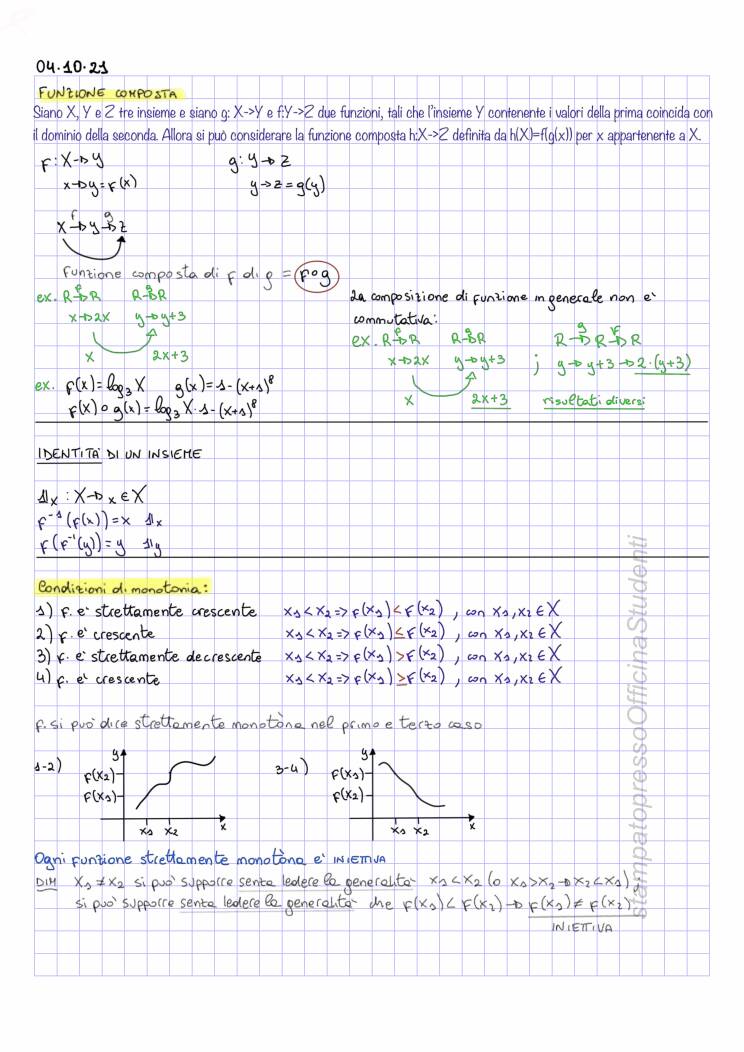 04.10.21
FUNZIONE COMPOSTA
Siano X, Y e Z tre insieme e siano g: X->Y e f:Y->Z due funzioni, tali che l'insieme Y contenente i valori della prima coincida con
il dominio della seconda. Allora si può considerare la funzione composta h:X->Z definita da h(X)=f(g(x)) per x appartenente a X.
f: X→y g: y→z
x→y=f(x) y→z=g(y)
x →f y →g z
Funzione composta di f di g = f∘g
ex. R →f R R →g R
x→2x y→y+3
x 2x+3
La composizione di funzione in generale non e'
commutativa:
ex. R →f R R →g R R →g R →f R
x→2x y→y+3 ; y→y+3→2·(y+3)
x 2x+3 risultati diversi
ex. f(x)=log₃X g(x)=1-(x+1)⁸
f(x)∘g(x)=log₃X·1-(x+1)⁸
IDENTITÀ DI UN INSIEME
𝟙x : X→x∈X
f⁻¹(f(x))=x 𝟙x
f(f⁻¹(y))=y 𝟙y
Condizioni di monotonia:
1) f. e' strettamente crescente x₁<x₂=>f(x₁)<f(x₂), con x₁,x₂∈X
2) f. e' crescente x₁<x₂=>f(x₁)≤f(x₂), con x₁,x₂∈X
3) f. e' strettamente decrescente x₁<x₂=>f(x₁)>f(x₂), con x₁,x₂∈X
4) f. e' crescente x₁<x₂=>f(x₁)≥f(x₂), con x₁,x₂∈X
f. si puo' dice strettamente monotòna nel primo e terzo caso
1-2) y f(x₂) f(x₁) x₁ x₂ x
3-4) y f(x₁) f(x₂) x₁ x₂ x
Ogni funzione strettamente monotòna e' INIETTIVA
DIM X₁≠X₂ si puo' supporre senza ledere la generalita' x₁<x₂ (o x₁>x₂→x₂<x₁);
si puo' supporre senza ledere la generalita' che f(x₁)<f(x₂)→f(x₁)≠f(x₂)
INIETTIVA
stampatopressoOfficinaStudenti